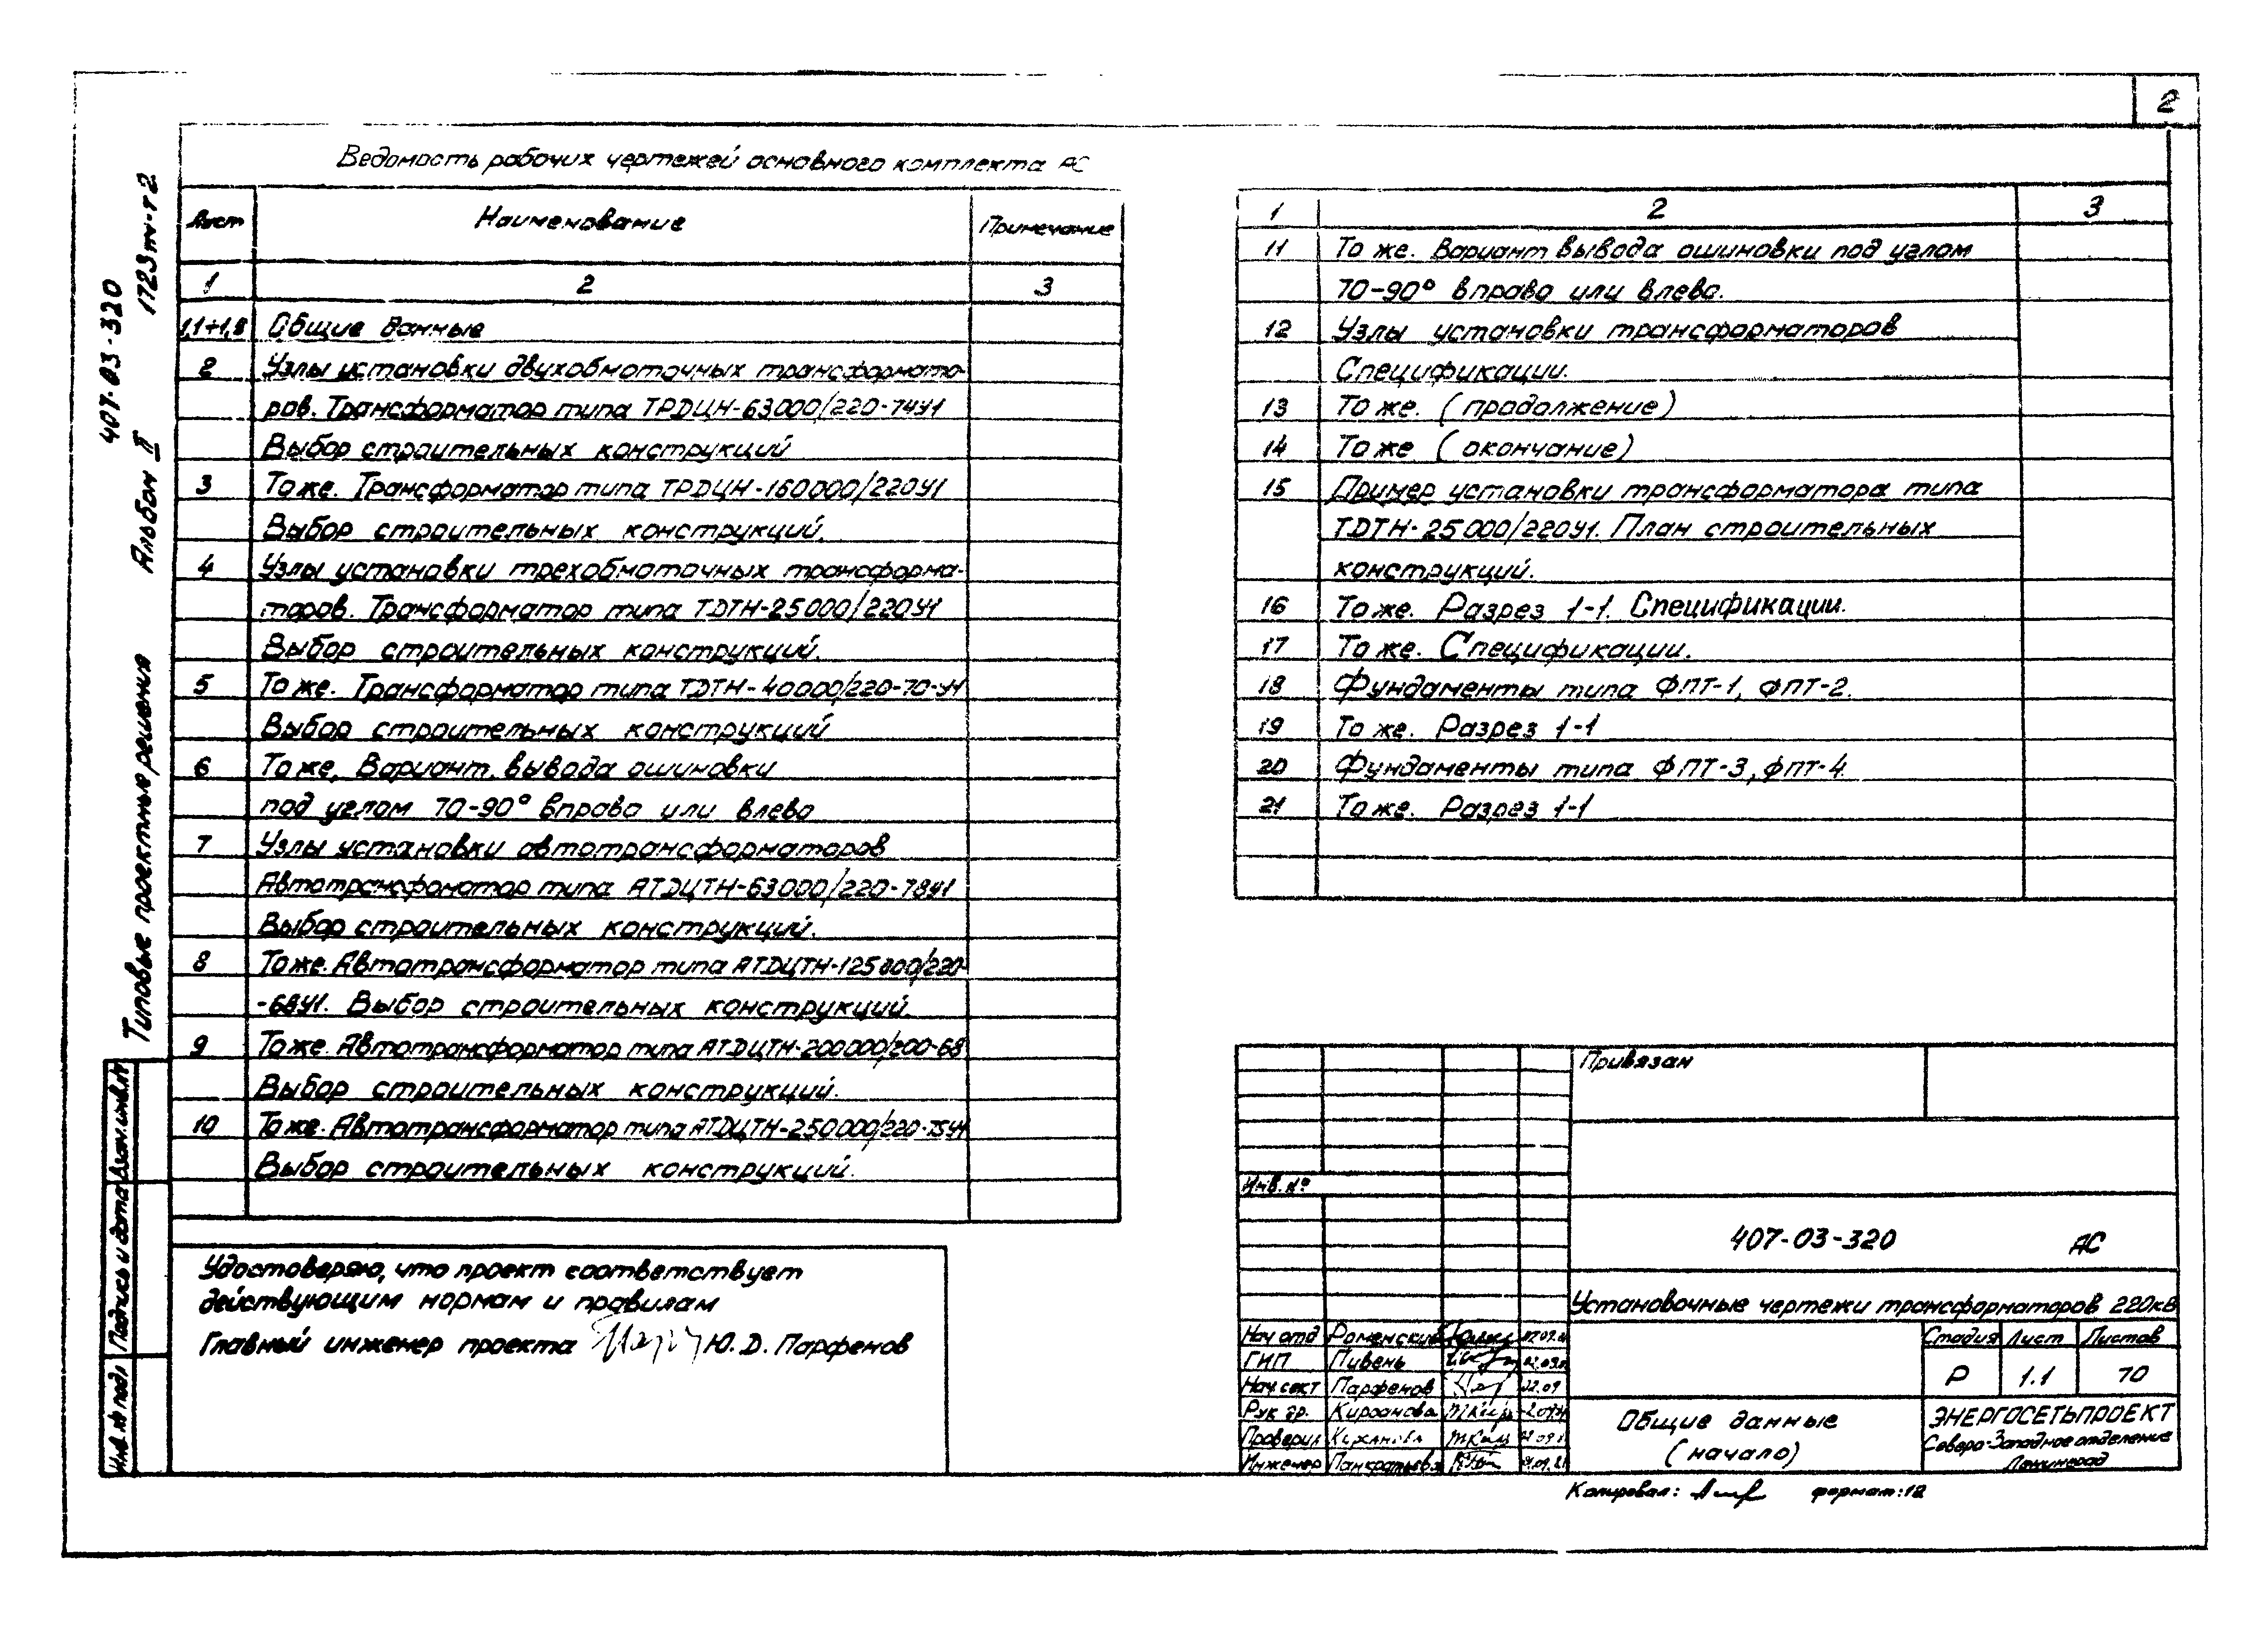 2
Ведомость рабочих чертежей основного комплекта АС
Лист Наименование Примечание
1 2 3
1,1÷1,8 Общие данные
2 Узлы установки двухобмоточных трансформато-
ров. Трансформатор типа ТРДЦН-63000/220-74У1
Выбор строительных конструкций
3 То же. Трансформатор типа ТРДЦН-160000/220У1
Выбор строительных конструкций.
4 Узлы установки трехобмоточных трансформа-
торов. Трансформатор типа ТДТН-25000/220У1
Выбор строительных конструкций.
5 То же. Трансформатор типа ТДТН-40000/220-70-У1
Выбор строительных конструкций
6 То же, Вариант вывода ошиновки
под углом 70-90° вправо или влево
7 Узлы установки автотрансформаторов
Автотрансфоматор типа АТДЦТН-63000/220-78У1
Выбор строительных конструкций.
8 То же. Автотрансформатор типа АТДЦТН-125000/220-
-68У1. Выбор строительных конструкций.
9 То же. Автотрансформатор типа АТДЦТН-200000/200-68
Выбор строительных конструкций.
10 То же. Автотрансформатор типа АТДЦТН-250000/220-75У1
Выбор строительных конструкций.
1 2 3
11 То же. Вариант вывода ошиновки под углом
70-90° вправо или влево.
12 Узлы установки трансформаторов
Спецификации.
13 То же. (продолжение)
14 То же (окончание)
15 Пример установки трансформатора типа
ТДТН-25000/220У1. План строительных
конструкций.
16 То же. Разрез 1-1. Спецификации.
17 То же. Спецификации.
18 Фундаменты типа ФПТ-1, ФПТ-2.
19 То же. Разрез 1-1
20 Фундаменты типа ФПТ-3, ФПТ-4
21 То же. Разрез 1-1
Удостоверяю, что проект соответствует
действующим нормам и правилам
Главный инженер проекта Ю. Д. Парфенов
Привязан
Инв. №
407-03-320 АС
Установочные чертежи трансформаторов 220кВ
Нач отд Роменский
ГИП Пивень
Нач. сект Парфенов 22.09
Рук гр. Кирсанова
Проверил
Инженер Панкратьева
Стадия Лист Листов
Р 1.1 70
Общие данные
(начало)
ЭНЕРГОСЕТЬПРОЕКТ
Северо-Западное отделение
Ленинград
Копировал: формат: 12
407-03-320
1723тм-т2
Типовые проектные решения Альбом II
Инв. № подл Подпись и дата Взам. инв. №